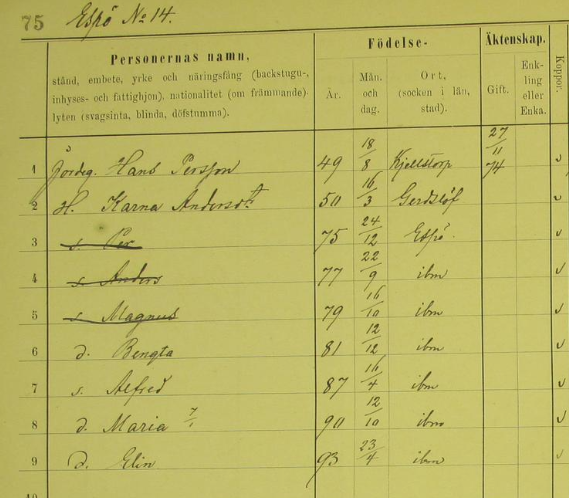 75 Espö No 14.
Personernas namn,
stånd, embete, yrke och näringsfång (backstugu-,
inhyses- och fattighjon), nationalitet (om främmande)
lyten (svagsinta, blinda, döfstumma).
Födelse-
År.
Mån. och dag.
Ort,
(socken i län,
stad).
Äktenskap.
Gift.
Enk-
ling
eller
Enka.
Koppor.
1 Jordeg. Hans Persson 49 18/8 Kjellstorp 27/11 74 v
2 H. Karna Andersdtr 50 16/3 Gerdslöf v
3 s. Per 75 24/12 Espö. v
4 s. Anders 77 22/9 ibm v
5 s. Magnus 79 16/10 ibm v
6 d. Bengta 81 12/12 ibm v
7 s. Alfred 87 16/4 ibm v
8 d. Maria 7/1 90 12/10 ibm v
9 d. Elin 93 23/4 ibm v
10